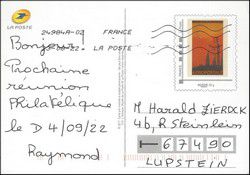 LA POSTE
24984A-02 FRANCE
LA POSTE
Bonjour
Prochaine
reunion
Philatélique
le D 4/09/22
Raymond
M. Harald ZIERDCK
4b, R Steinlein
67490
LUPSTEIN